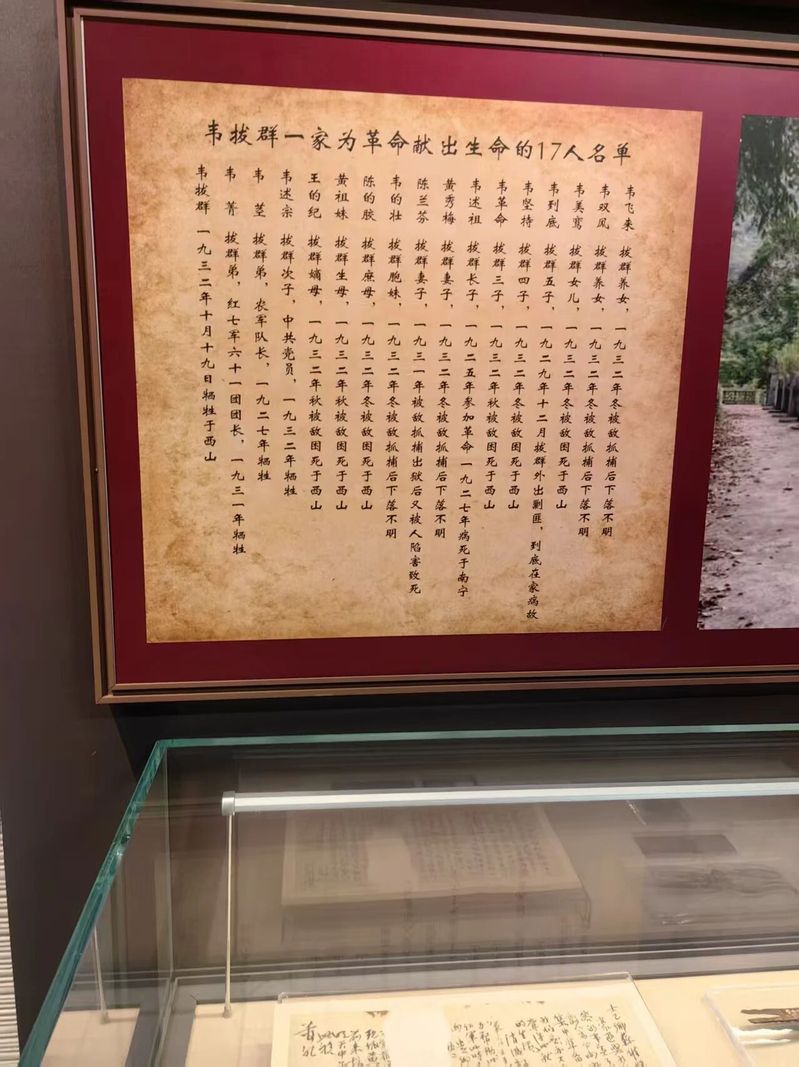 韦拔群一家为革命献出生命的17人名单
韦拔群 一九三二年十月十九日牺牲于西山
韦 菁 拔群弟，红七军六十一团团长，一九三一年牺牲
韦 茎 拔群弟，农军队长，一九二七年牺牲
韦述宗 拔群次子，中共党员，一九三二年牺牲
王的纪 拔群嫡母，一九三二年秋被敌困死于西山
黄祖妹 拔群生母，一九三二年秋被敌困死于西山
陈的胶 拔群庶母，一九三二年冬被敌困死于西山
韦的壮 拔群胞妹，一九三二年冬被敌抓捕后下落不明
陈兰芬 拔群妻子，一九三一年被敌抓捕出狱后又被人陷害致死
黄秀梅 拔群妻子，一九三二年冬被敌抓捕后下落不明
韦述祖 拔群长子，一九二五年参加革命 一九二七年病死于南宁
韦革命 拔群三子，一九三二年秋被敌困死于西山
韦坚持 拔群四子，一九三二年冬被敌困死于西山
韦到底 拔群五子，一九二九年十二月拔群外出剿匪，到底在家病故
韦美鸾 拔群女儿，一九三二年冬被敌困死于西山
韦双凤 拔群养女，一九三二年冬被敌抓捕后下落不明
韦飞来 拔群养女，一九三二年冬被敌抓捕后下落不明